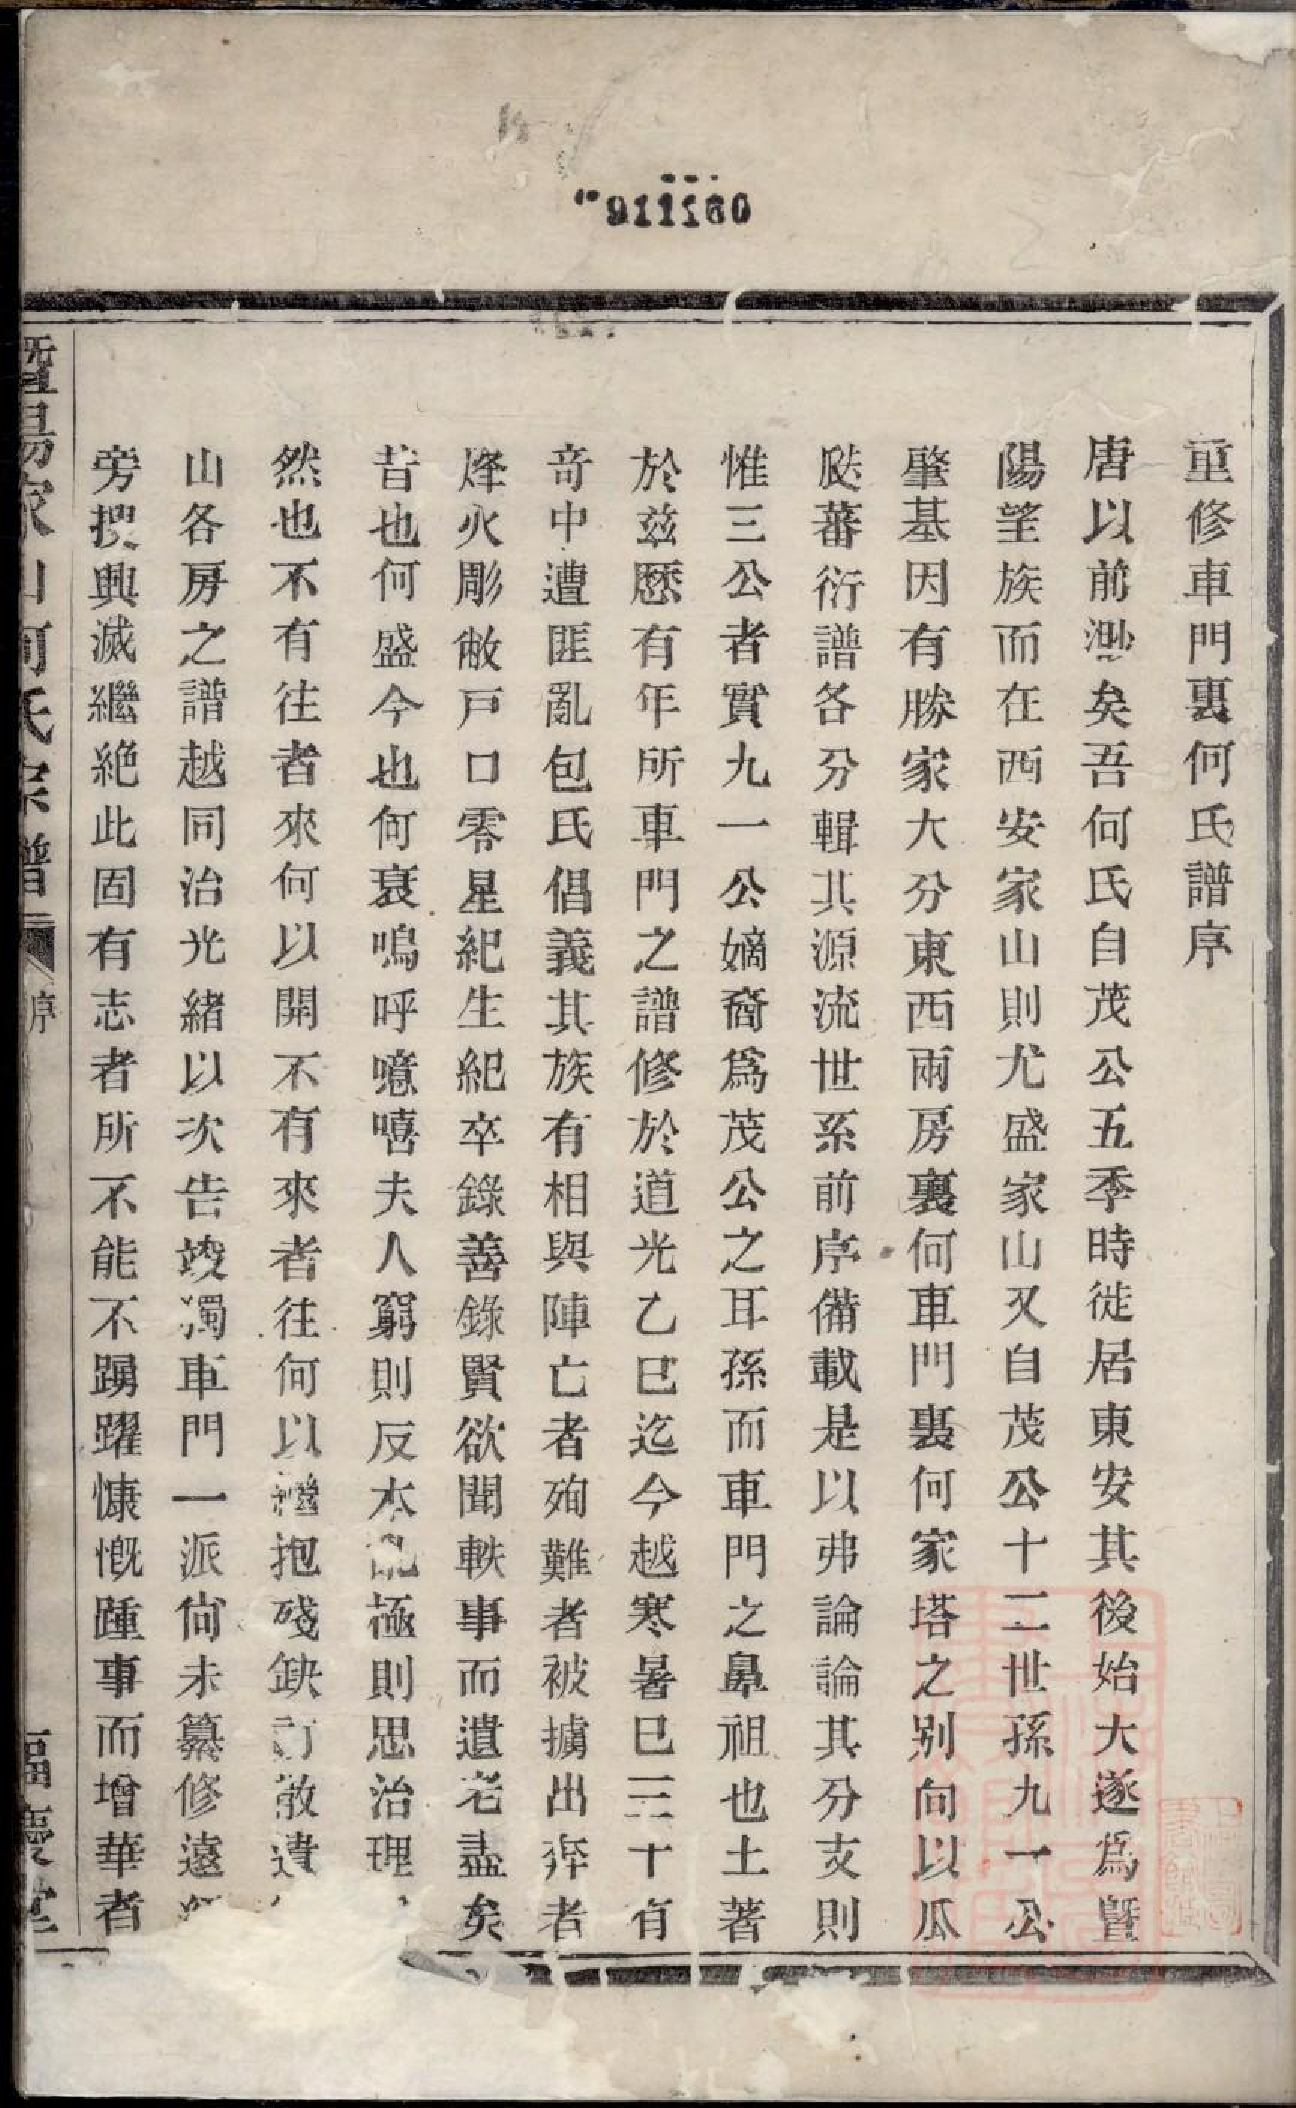 重修車門裏何氏譜序
唐以前渺矣吾何氏自茂公五季時徙居東安其後始大遂爲暨
陽望族而在西安家山則尤盛家山又自茂公十二世孫九一公
肇基因有勝家大分東西兩房裏何車門裏何家塔之别向以瓜
瓞蕃衍譜各分輯其源流世系前序備載是以弗論論其分支則
惟三公者實九一公嫡裔爲茂公之耳孫而車門之鼻祖也土著
於兹歷有年所車門之譜修於道光乙巳迄今越寒暑巳三十有
奇中遭匪亂包氏倡義其族有相與陣亡者殉難者被擄出奔者
烽火彫敝戸口零星紀生紀卒錄善錄賢欲聞軼事而遺老盡矣
昔也何盛今也何衰嗚呼噫嘻夫人窮則反本亂極則思治理
然也不有往者來何以開不有來者往何以繼抱殘缺訂散遺
山各房之譜越同治光緒以次告竣獨車門一派尙未纂修遠
旁搜興滅繼絶此固有志者所不能不踴躍慷慨踵事而增華者
暨陽家山何氏宗譜
序
福慶堂